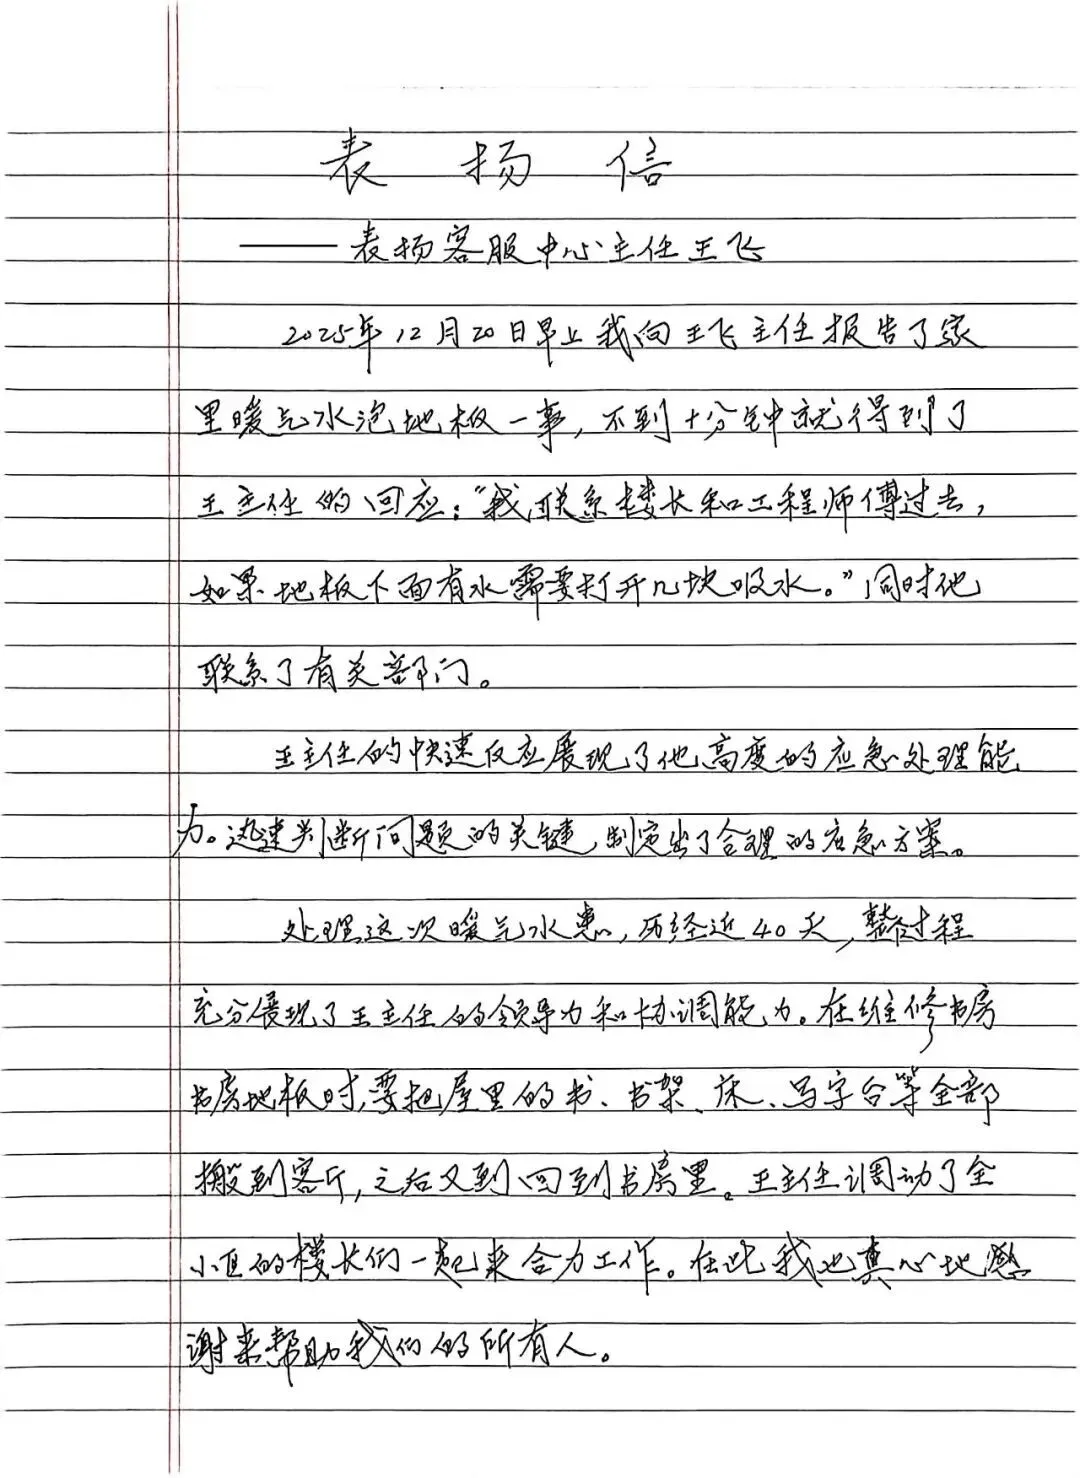 表扬信
——表扬客服中心主任王飞
2025年12月20日早上我向王飞主任报告了家
里暖气水泡地板一事，不到十分钟就得到了
王主任的回应：“我联系楼长和工程师傅过去，
如果地板下面有水需要打开几块吸水。”同时他
联系了有关部门。
王主任的快速反应展现了他高度的应急处理能
力。迅速判断问题的关键，制定出了合理的应急方案。
处理这次暖气水患，历经近40天，整个过程
充分展现了王主任的领导力和协调能力。在维修书房
书房地板时，要把屋里的书、书架、床、写字台等全部
搬到客厅，之后又到回到书房里。王主任调动了全
小区的楼长们一起来合力工作。在此我也真心地感
谢来帮助我们的所有人。